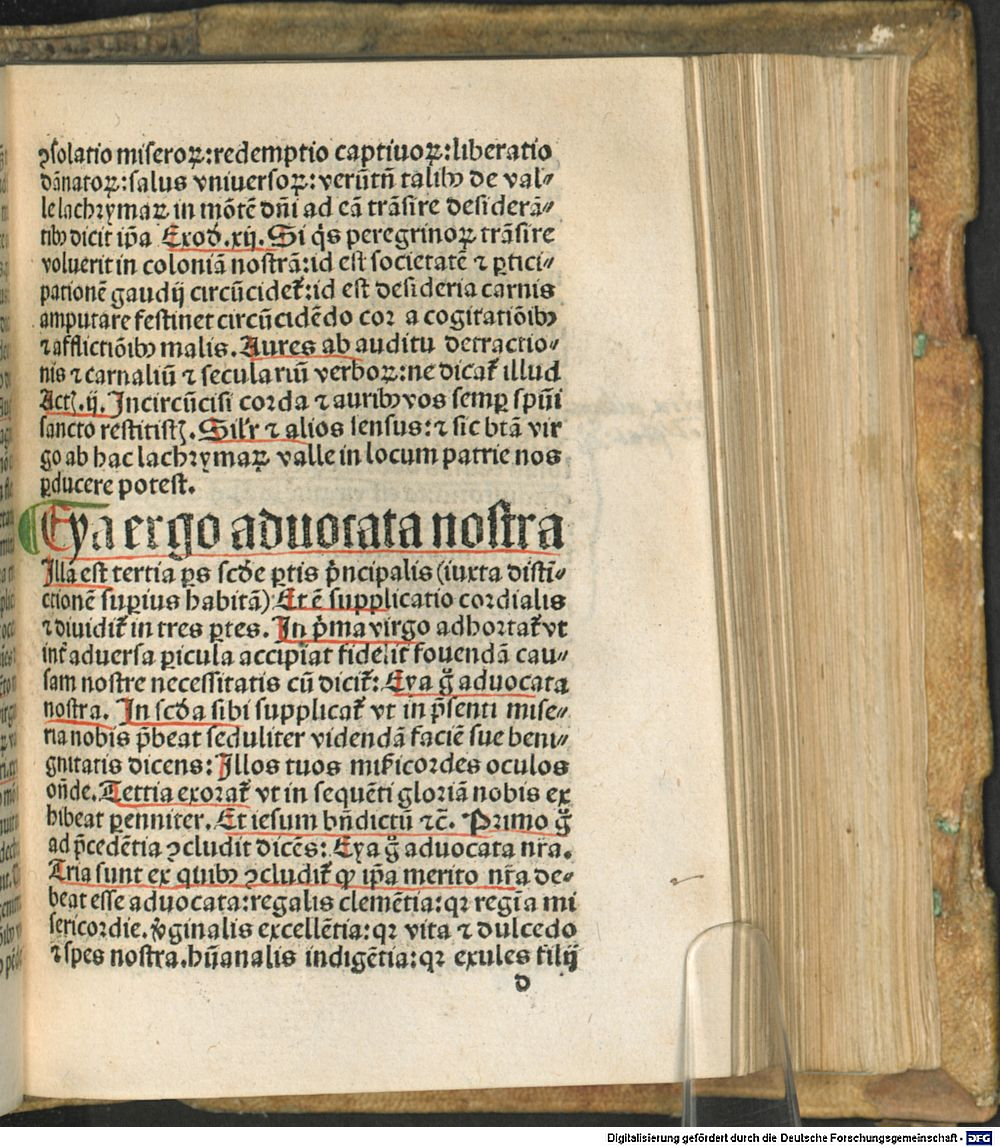 ꝯsolatio miseroꝝ:redemptio captiuoꝝ:liberatio
dãnatoꝝ:salus vniuersoꝝ:verũtñ talibꝰ de val⸗
le lachrymaꝝ in mõtẽ dñi ad eã trãsire desiderã⸗
tibꝰ dicit ip̃a Exod.xij. Si q̇s peregrinoꝝ trãsire
voluerit in coloniã nostrã:id est societatẽ ⁊ ꝑtici⸗
pationẽ gaudij circũcidet᷑:id est desideria carnis
amputare festinet circũcidẽdo cor a cogitatiõibꝰ
⁊ afflictiõibꝰ malis. Aures ab auditu detractio⸗
nis ⁊ carnaliũ ⁊ seculariũ verboꝝ:ne dicat᷑ illud
Actꝭ.ij. Incircũcisi corda ⁊ auribꝰ vos semꝑ spũi
sancto restitistꝭ. Silr̃ ⁊ alios sensus:⁊ sic btã vir
go ab hac lachrymaꝝ valle in locum patrie nos
ꝑducere potest.
Eya ergo aduocata nostra
Illa est tertia ꝑs scd̃e ꝑtis pͥncipalis (iuxta disti⸗
ctionẽ suꝑius habitã) Et ẽ supplicatio cordialis
⁊ diuidit᷑ in tres ꝑtes. In pͥma virgo adhortat᷑ vt
int᷑ aduersa ꝑicula accipiat fidelit᷑ fouendã cau⸗
sam nostre necessitatis cũ dicit᷑: Eya g̊ aduocata
nostra. In scd̃a sibi supplicat᷑ vt in p̃senti mise⸗
ria nobis p̃beat seduliter videndã faciẽ sue beni⸗
gnitatis dicens: Illos tuos mĩcordes oculos
oñde. Tertia exorat᷑ vt in sequẽti gloriã nobis ex
hibeat ꝑenniter. Et iesum bñdictũ ⁊c̃. Primo g̊
ad p̃cedẽtia ꝯcludit dicẽs: Eya g̊ aduocata nr̃a.
Tria sunt ex quibꝰ ꝯcludit᷑ ꝙ ip̃a merito nr̃a de⸗
beat esse aduocata:regalis clemẽtia:qꝛ regĩa mi
sericordie. v̓ginalis excellẽtia:qꝛ vita ⁊ dulcedo
⁊ spes nostra. hũanalis indigẽtia:qꝛ exules filij
d
Digitalisierung gefördert durch die Deutsche Forschungsgemeinschaft - DFG